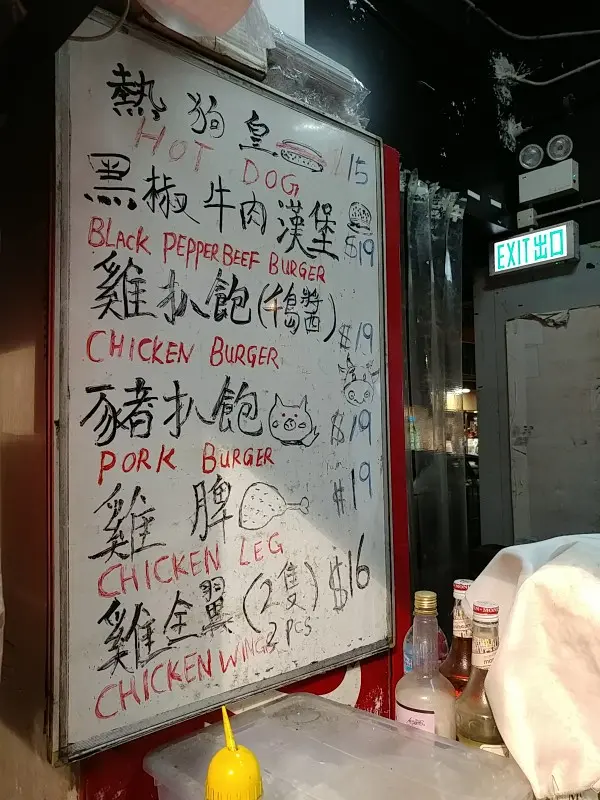 熱狗皇 $15
HOT DOG
黑椒牛肉漢堡 $19
BLACK PEPPER BEEF BURGER
雞扒飽(千島醬) $19
CHICKEN BURGER
豬扒飽 $19
PORK BURGER
雞脾 $19
CHICKEN LEG
雞全翼(2隻) $16
CHICKEN WINGS 2 PCS
EXIT 出口